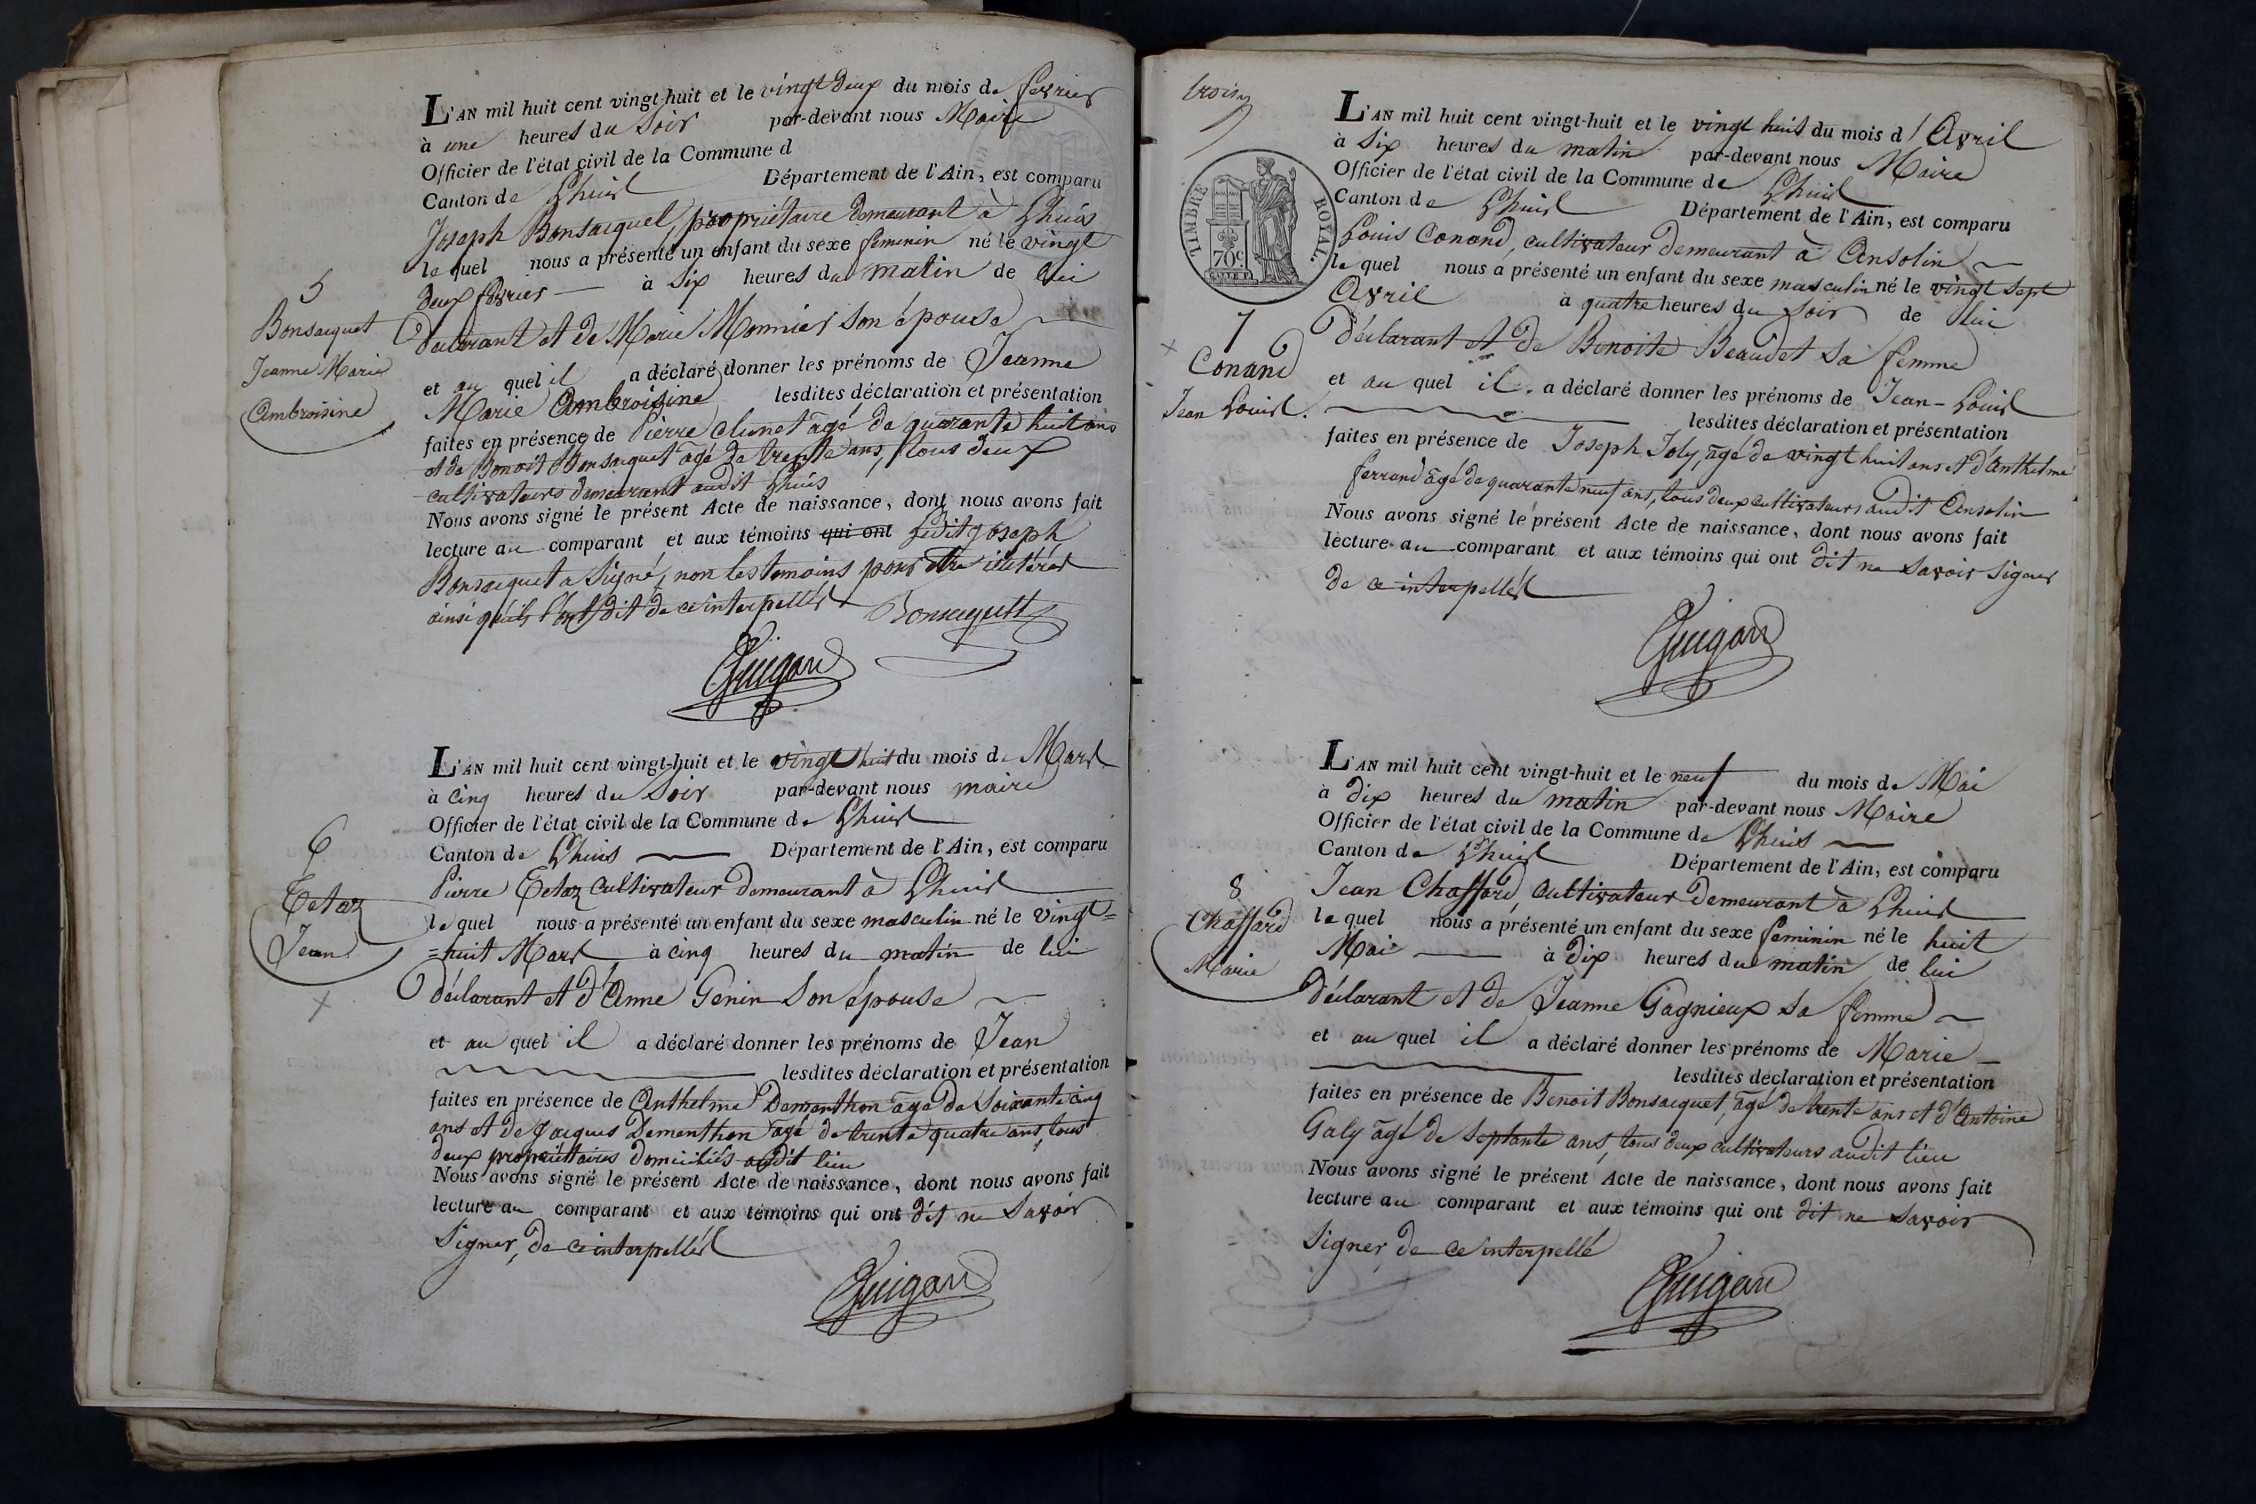 L'AN mil huit cent vingt-huit et le vingt deux du mois de fevrier
à une heures du Soir par-devant nous Maire
Officier de l'état civil de la Commune d
Canton de Lhuis Département de l'Ain, est comparu
Joseph Bonsacquet, propriétaire demeurant à Lhuis
le quel nous a présenté un enfant du sexe feminin né le vingt
deux fevrier à Six heures du matin de lui
déclarant et de Marie Monnier son épouse
et au quel il a déclaré donner les prénoms de Jeanne
Marie Ambroisine lesdites déclaration et présentation
faites en présence de Pierre Clunet agé de quarante huit ans
et de Benoit Bonsacquet agé de trente ans, tous deux
cultivateurs demeurant audit Lhuis
Nous avons signé le présent Acte de naissance, dont nous avons fait
lecture au comparant et aux témoins qui ont Ledit Joseph
Bonsacquet a Signé, non les temoins pour être illitérés
ainsi qu'ils l'ont dit de ce interpellés
Guigard
5
Bonsacquet
Jeanne Marie
Ambroisine
L'AN mil huit cent vingt-huit et le vingt huit du mois de Mars
à cinq heures du Soir par-devant nous maire
Officier de l'état civil de la Commune de Lhuis
Canton de Lhuis Département de l'Ain, est comparu
Pierre Tetaz cultivateur demeurant à Lhuis
le quel nous a présenté un enfant du sexe masculin né le vingt=
=huit Mars à cinq heures du matin de lui
déclarant et d'Anne Genin Son épouse
et au quel il a déclaré donner les prénoms de Jean
lesdites déclaration et présentation
faites en présence de Anthelme Dementhon agé de Soixante cinq
ans et de Jacques Dementhon agé de trente quatre ans, tous
deux propriétaires domiciliés audit lieu
Nous avons signé le présent Acte de naissance, dont nous avons fait
lecture au comparant et aux témoins qui ont dit ne Savoir
Signer, de ce interpellés
6
Tetaz
Jean
troisy
TIMBRE ROYAL.
70c
L'AN mil huit cent vingt-huit et le vingt huit du mois d'Avril
à Six heures du matin par-devant nous Maire
Officier de l'état civil de la Commune de Lhuis
Canton de Lhuis Département de l'Ain, est comparu
Louis Conand, cultivateur demeurant à Ansolin
le quel nous a présenté un enfant du sexe masculin né le vingt sept
Avril à quatre heures du Soir de lui
déclarant et de Benoite Beaudet Sa femme
et au quel il a déclaré donner les prénoms de Jean-Louis
lesdites déclaration et présentation
faites en présence de Joseph Joly, agé de vingt huit ans et d'Anthelme
ferrand agé de quarante neuf ans, tous deux cultivateurs audit Ansolin
Nous avons signé le présent Acte de naissance, dont nous avons fait
lecture au comparant et aux témoins qui ont dit ne Savoir Signer
de ce interpellés
7
Conand
Jean Louis.
L'AN mil huit cent vingt-huit et le neuf du mois de Mai
à dix heures du matin par-devant nous Maire
Officier de l'état civil de la Commune de Lhuis
Canton de Lhuis Département de l'Ain, est comparu
Jean Chaffard, cultivateur demeurant à Lhuis
le quel nous a présenté un enfant du sexe feminin né le huit
Mai à dix heures du matin de lui
déclarant et de Jeanne Gagnieux Sa femme
et au quel il a déclaré donner les prénoms de Marie
lesdites déclaration et présentation
faites en présence de Benoit Bonsacquet, agé de trente ans et d'Antoine
Galy agé de Septante ans, tous deux cultivateurs audit lieu
Nous avons signé le présent Acte de naissance, dont nous avons fait
lecture au comparant et aux témoins qui ont dit ne Savoir
Signer de ce interpellé
8
Chaffard
Marie